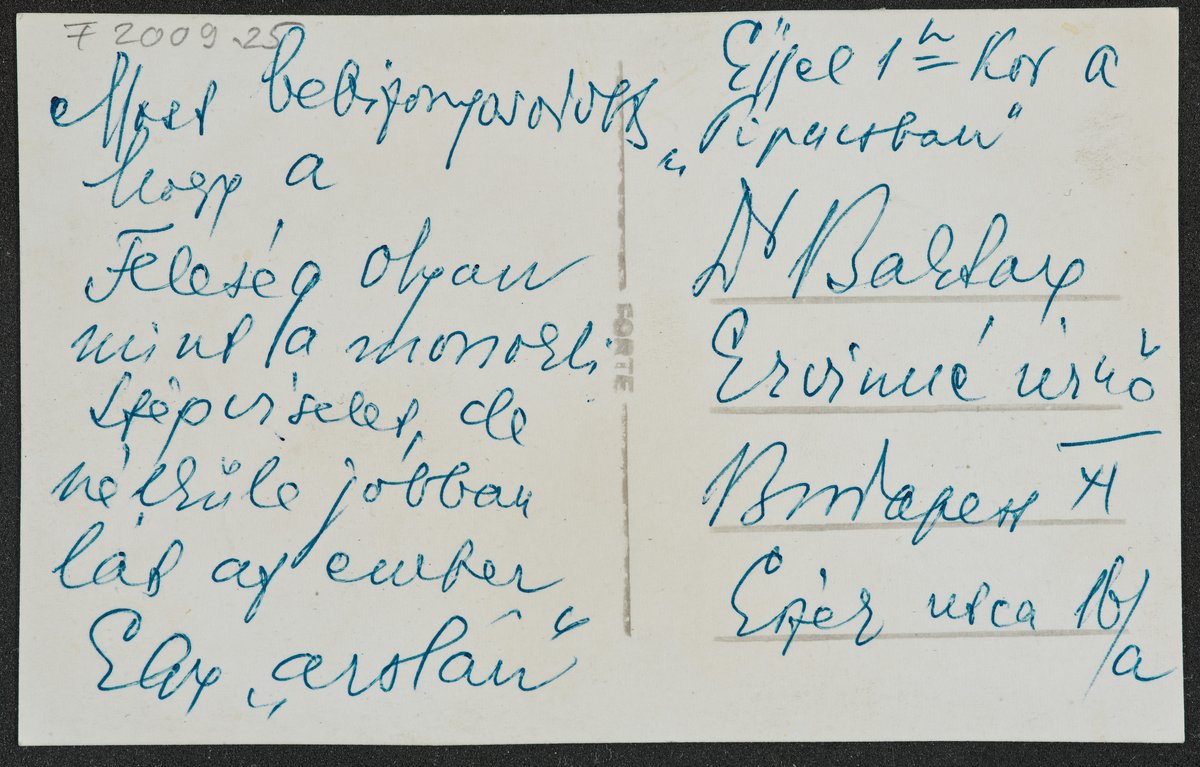 F 2009.25
Most bebizonyosodott
hogy a
Feleség olyan
mint a monokli
szépviselet, de
nélküle jobban
lát az ember
Elay „arslán"
FORTE
Éjjel 1 h kor a
„Pipacsban"
Dr Baktay
Ervinné úrnő
Budapest XI
Eszék utca 16/a